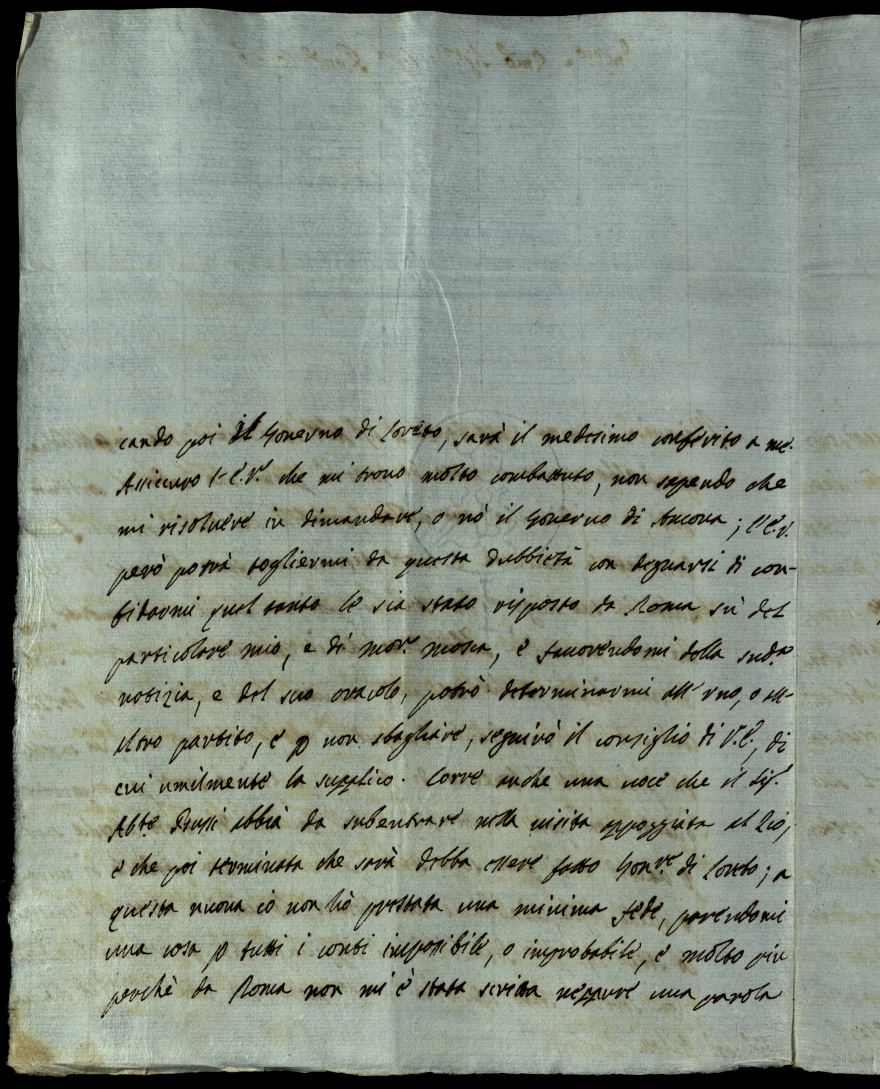 cando poi il Governo di Loreto, sarà il medesimo conferito a me.
Assicuro l'E.V. che mi trovo molto combattuto, non sapendo che
mi risolvere in dimandare, o nò il Governo di Ancona; l'E.V.
però potrà togliermi da questa dubbietà con degnarsi di con-
fidarmi quel tanto le sia stato risposto da Roma sù del
particolare mio, e di Mons.r Mosca, e favorendomi della sud.a
notizia, e del suo oracolo, potrò determinarmi all'uno, o all'
altro partito, e p non sbagliare, seguirò il consiglio di V.E., di
cui umilmente la supplico. Corre anche una voce che il Sig.r
Abte abbia da subentrare nella visita appoggiata al Zio,
e che poi terminata che sarà debba essere fatto Gov.re di Loreto; a
questa nuova io non hò prestata una minima fede, parendomi
una cosa p tutti i conti impossibile, o improbabile, e molto più
perchè da Roma non mi è stata scritta neppure una parola